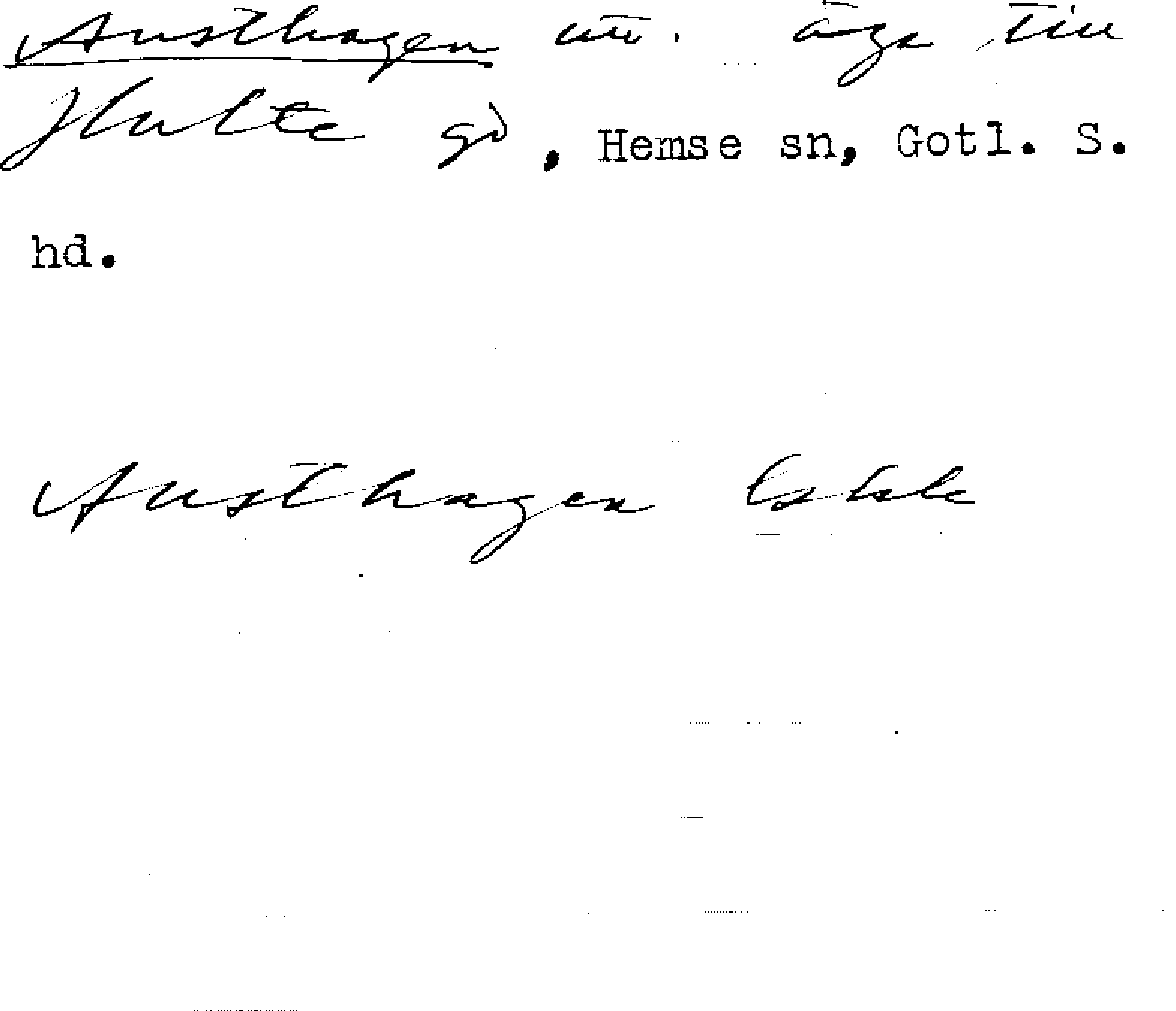 Austhagen utr. äga till
Hulte gd, Hemse sn, Gotl. S.
hd.
Austhagen